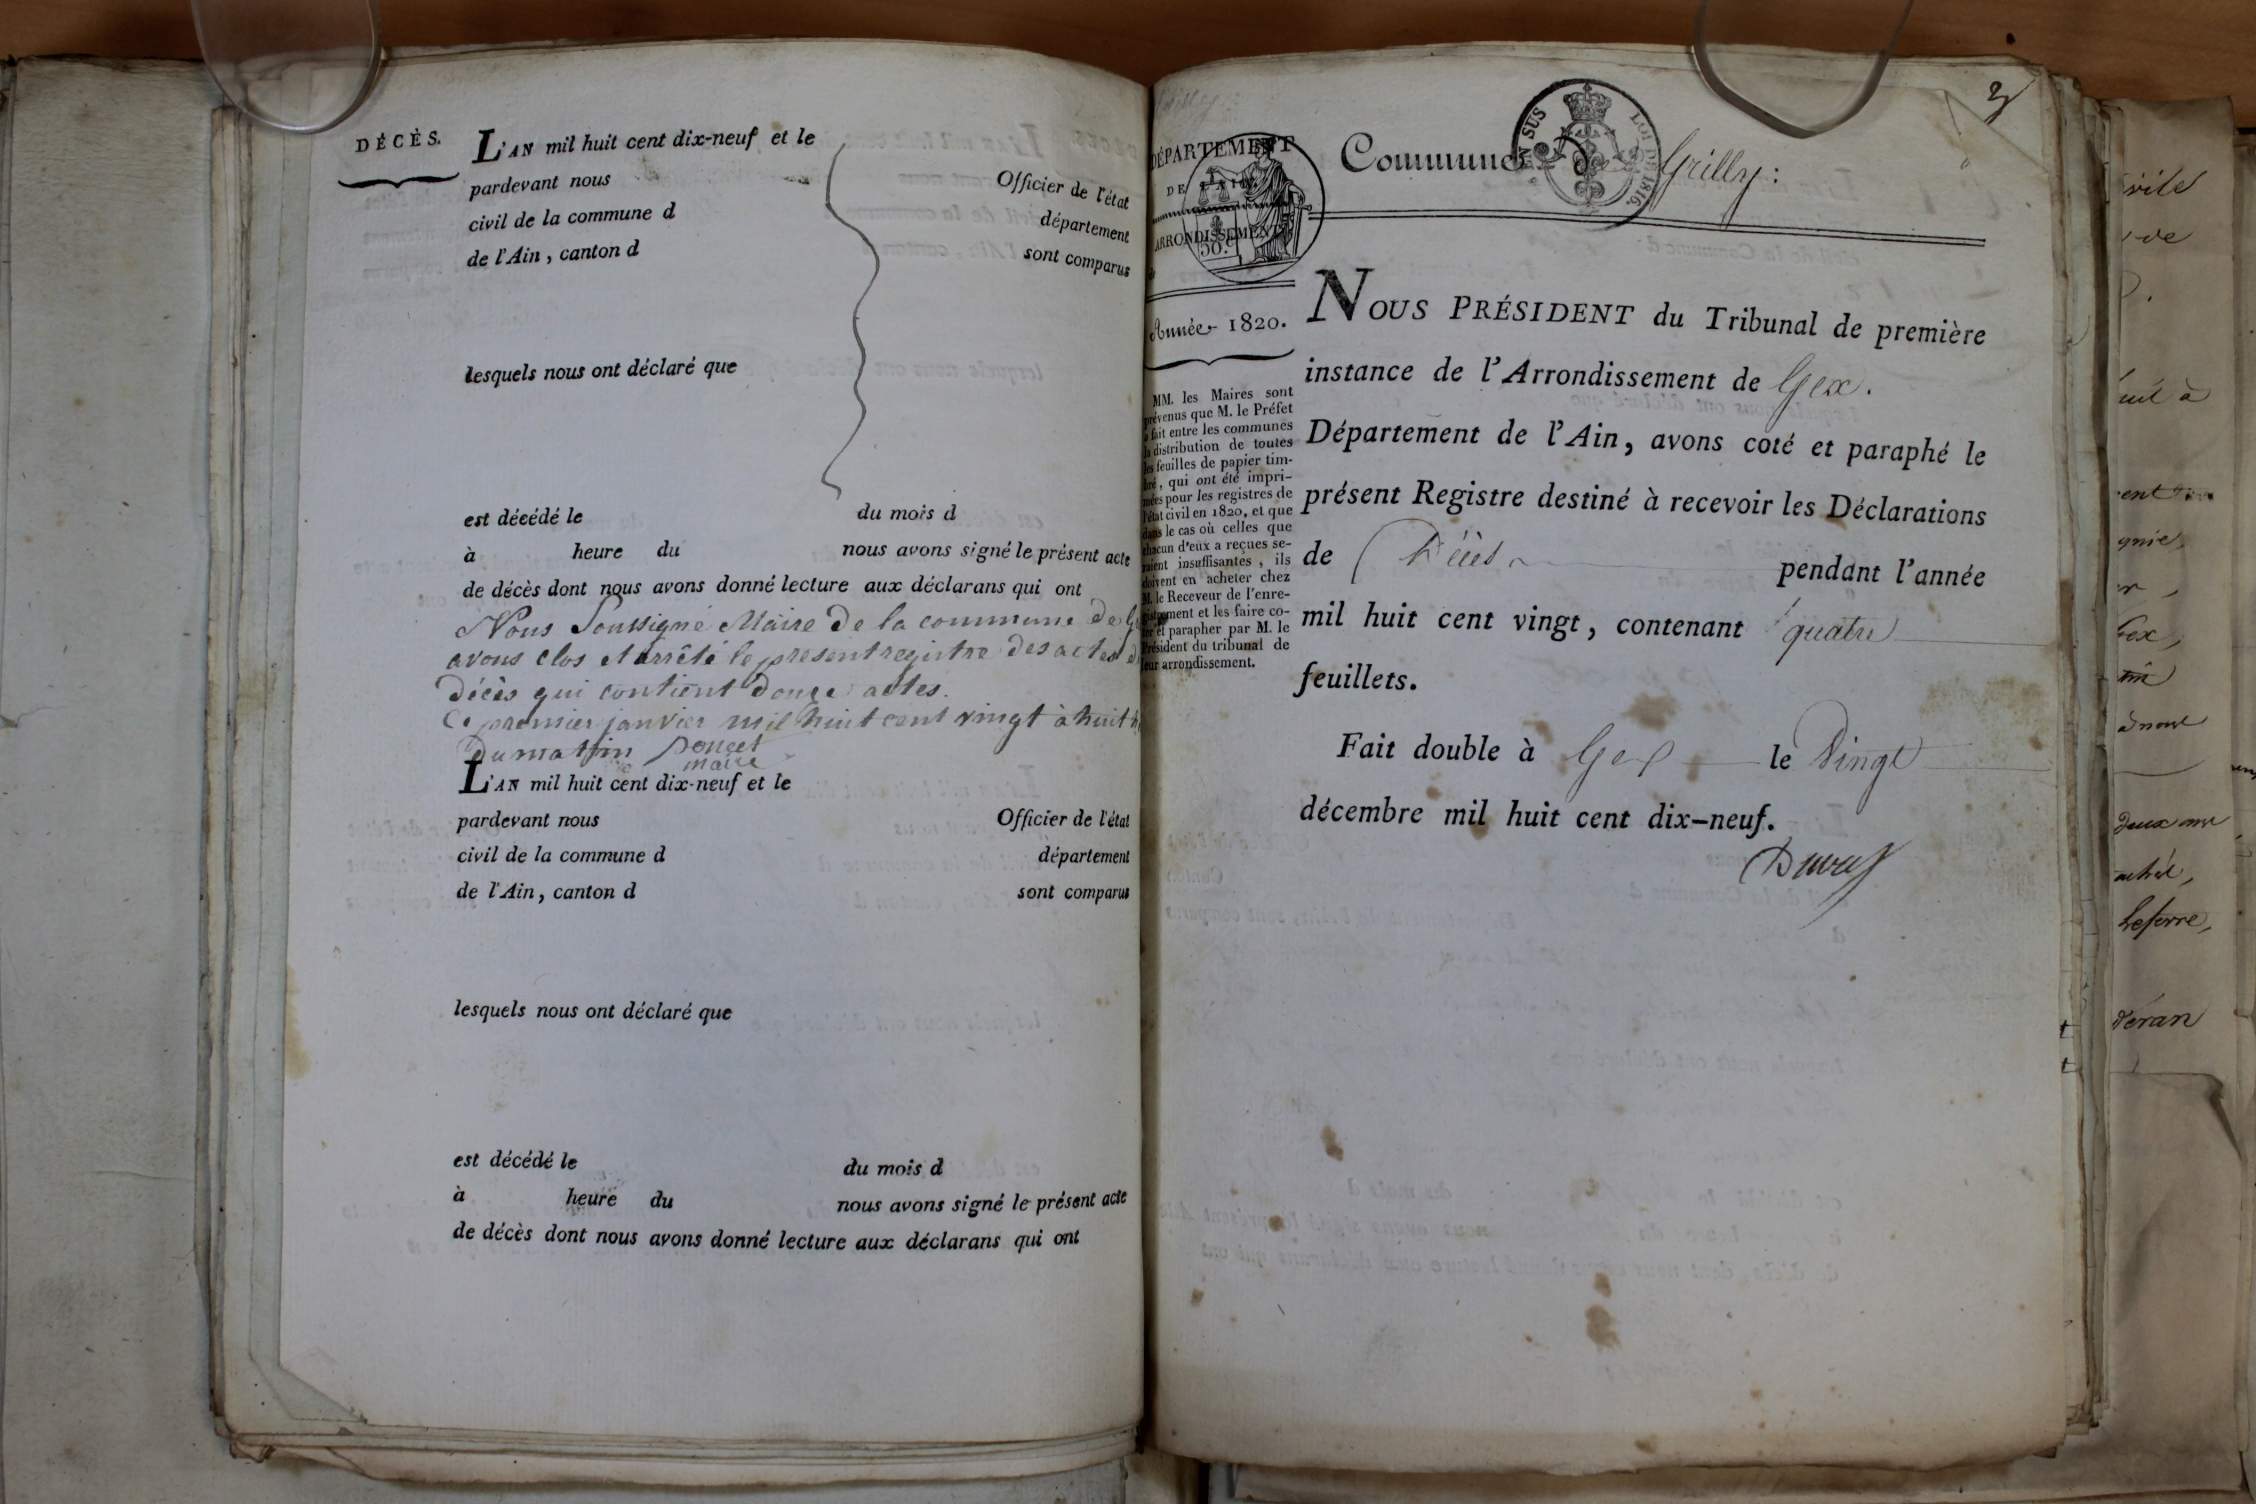 DÉCÈS.
L'AN mil huit cent dix-neuf et le
pardevant nous Officier de l'état
civil de la commune d département
de l'Ain, canton d sont comparus
lesquels nous ont déclaré que
est décédé le du mois d
à heure du nous avons signé le présent acte
de décès dont nous avons donné lecture aux déclarans qui ont
Nous Soussigné Maire de la commune de
avons clos et arrêté le present registre des actes
décès qui contient douze actes.
Ce premier janvier mil huit cent vingt à huit
du matin
maire
L'AN mil huit cent dix-neuf et le
pardevant nous Officier de l'état
civil de la commune d département
de l'Ain, canton d sont comparus
lesquels nous ont déclaré que
est décédé le du mois d
à heure du nous avons signé le présent acte
de décès dont nous avons donné lecture aux déclarans qui ont
DÉPARTEMENT
DE L'AIN.
ARRONDISSEMENT
50.c
Année 1820.
MM. les Maires sont
prévenus que M. le Préfet
a fait entre les communes
la distribution de toutes
les feuilles de papier tim-
bré, qui ont été impri-
mées pour les registres de
l'état civil en 1820, et que
dans le cas où celles que
chacun d'eux a reçues se-
raient insuffisantes, ils
doivent en acheter chez
M. le Receveur de l'enre-
gistrement et les faire co-
ter et parapher par M. le
Président du tribunal de
leur arrondissement.
EN SUS LOI DE 1816.
Commune de Grilly:
NOUS PRÉSIDENT du Tribunal de première
instance de l'Arrondissement de Gex.
Département de l'Ain, avons coté et paraphé le
présent Registre destiné à recevoir les Déclarations
de Décès pendant l'année
mil huit cent vingt, contenant quatre
feuillets.
Fait double à Gex le Vingt
décembre mil huit cent dix-neuf.